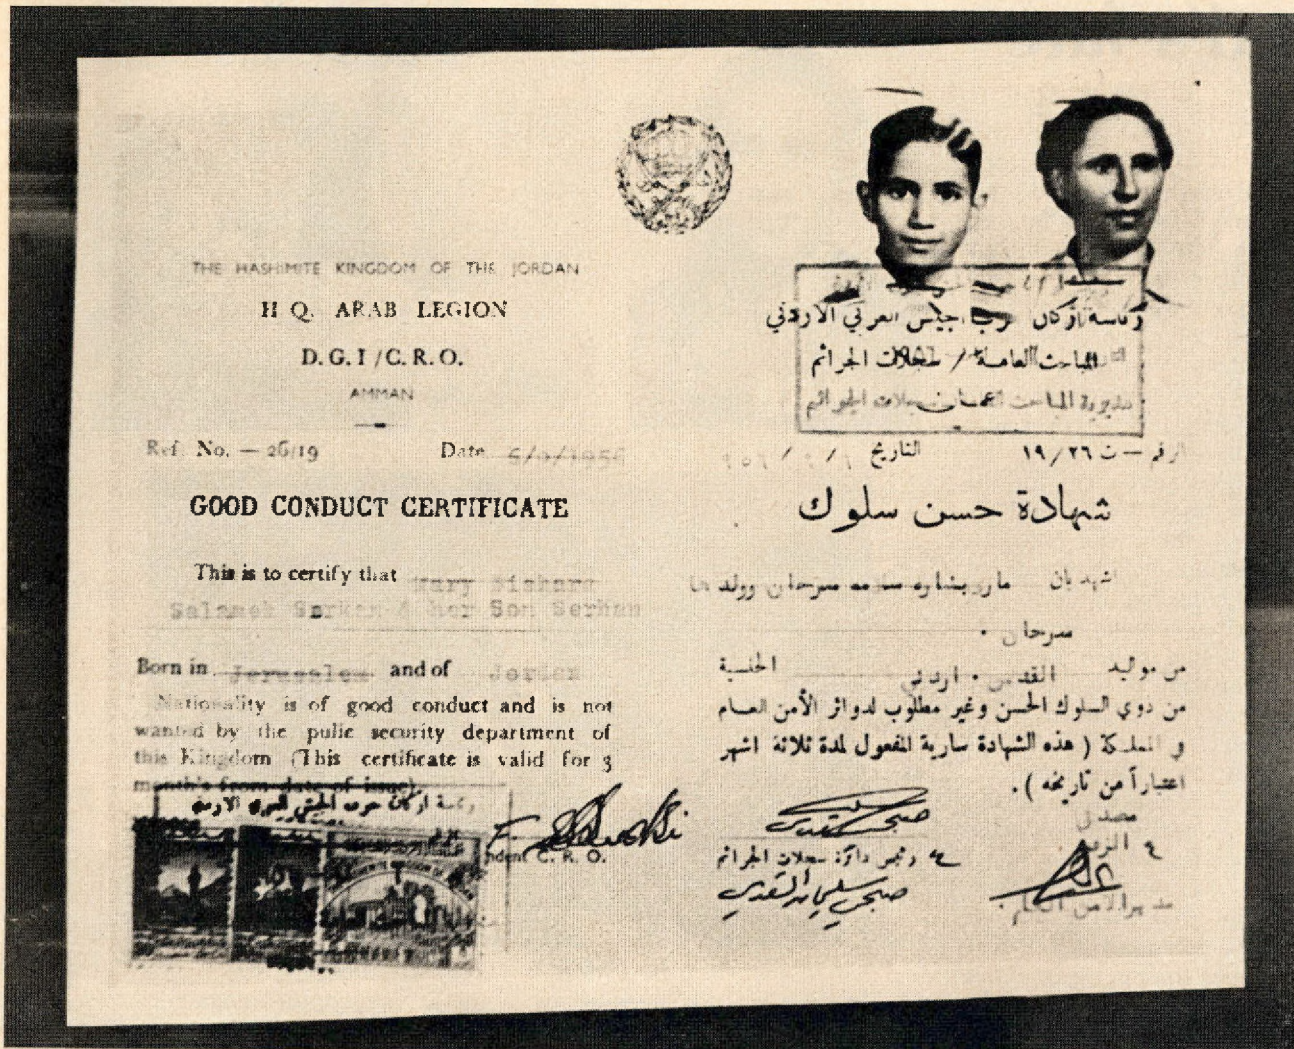 THE HASHIMITE KINGDOM OF THE JORDAN
H Q. ARAB LEGION
D.G.I/C.R.O.
AMMAN
Ref. No. — 26/19 Date
GOOD CONDUCT CERTIFICATE
This is to certify that Mary Bishara
Salameh Serhan & her Son Serhan
Born in Jerusalem and of Jordan
Nationality is of good conduct and is not
wanted by the pulic security department of
this Kingdom (This certificate is valid for 3
month's from date of issue)
C. R. O.
رئاسة اركان حرب الجيش العربي الاردني
المباحث العامة / سجلات الجرائم
مديرية المباحث سجلات الجرائم
الرقم — ت ١٩/٢٦ التاريخ
شهادة حسن سلوك
اشهد بان ماري بشاره سلامه سرحان وولدها
سرحان .
من مواليد القدس . اردني الجنسية
من ذوي السلوك الحسن وغير مطلوب لدوائر الأمن العام
في المملكة ( هذه الشهادة سارية المفعول لمدة ثلاثة اشهر
اعتباراً من تاريخه ) .
رئيس دائرة سجلات الجرائم
مدير الامن العام
رئاسة اركان حرب الجيش العربي الاردني